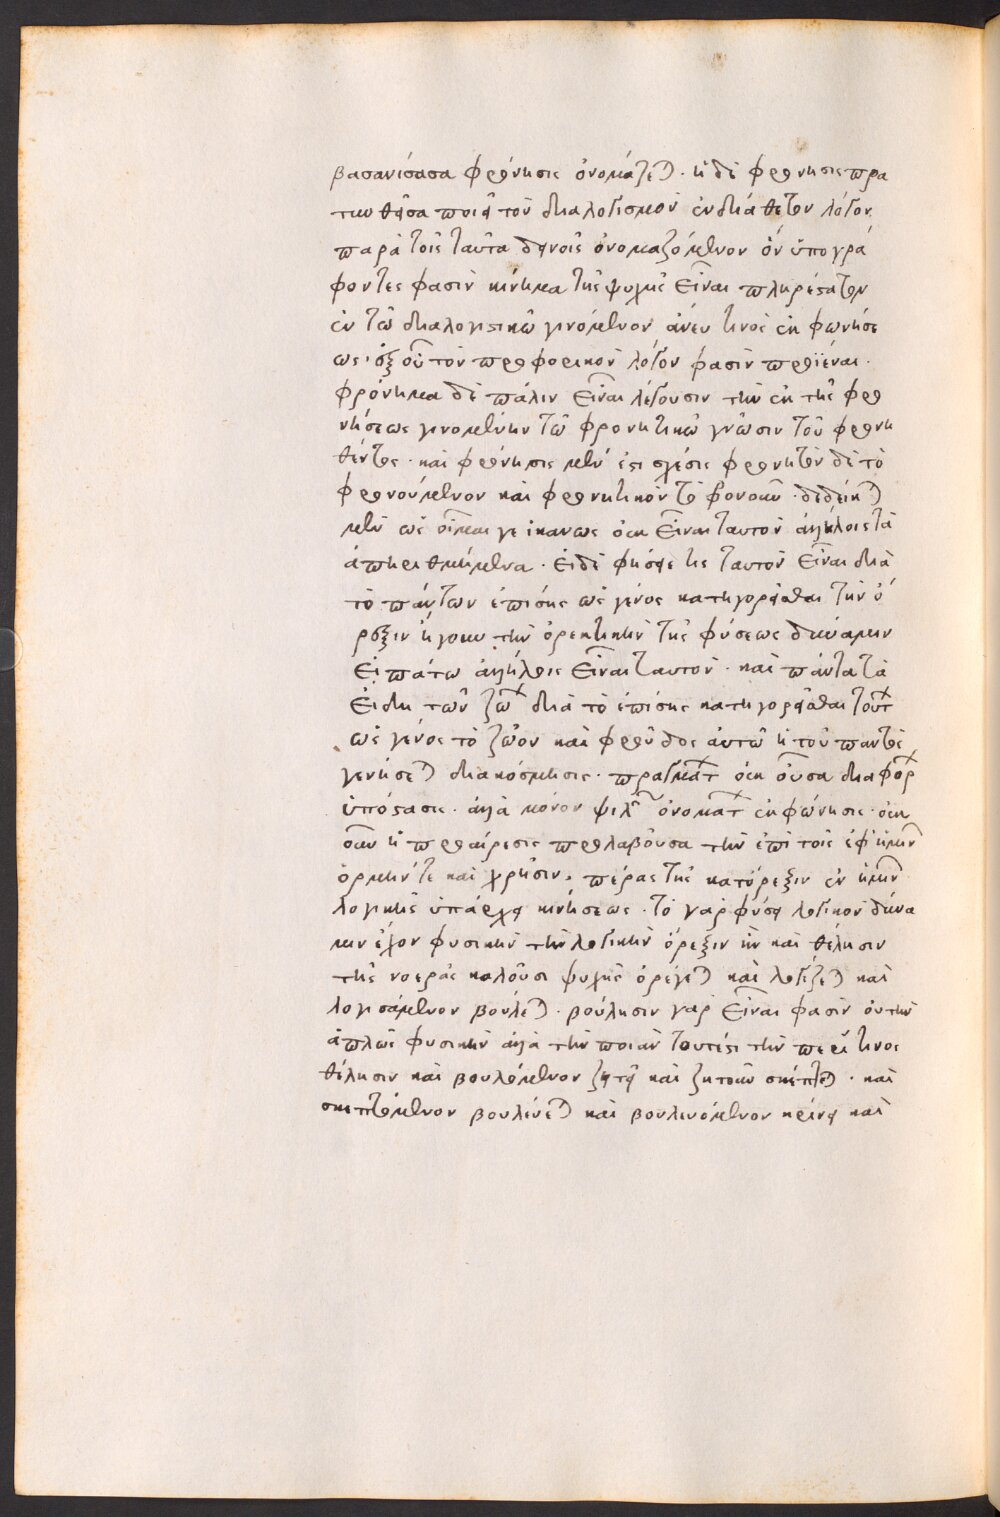 βασανίσασα φρόνησις ὀνομάζεται · ἡ δὲ φρόνησις πλα
τυνθεῖσα ποιεῖ τὸν διαλογισμὸν ἐνδιάθετον λόγον
παρὰ τοῖς ταῦτα δεινοῖς ὀνομαζόμενον ὃν ὑπογρά
φοντες φασὶν κίνημα τῆς ψυχῆς εἶναι πληρέστατον
ἐν τῶ διαλογιστικῶ γινόμενον ἄνευ τινὸς ἐκφωνήσε
ως · ἐξ οὗ τὸν προφορικὸν λόγον φασὶν προϊέναι ·
φρόνημα δὲ πάλιν εἶναι λέγουσιν τὴν ἐκ τῆς φρο
νήσεως γινομένην τῶ φρονητικῶ γνῶσιν τοῦ φρονη
θέντος · καὶ φρόνησις μέν ἐστι σχέσις φρονητὸν δὲ τὸ
φρονούμενον καὶ φρονητικὸν τὸ φρονοῦν · δέδεικται
μὲν ὡς οἶμαι γε ἱκανως οὐκ εἶναι ταυτὸν ἀλλήλοις τὰ
ἀπηριθμημένα · εἰ δὲ φήσειέ τις ταυτὸν εἶναι διὰ
τὸ πάντων ἐπίσης ὡς γένος κατηγορεῖσθαι τὴν ὄ
ρεξιν ἤγουν τὴν ὀρεκτικὴν τῆς φύσεως δύναμιν
εἰπάτω ἀλλήλοις εἶναι ταυτὸν · καὶ πάντα τὰ
εἴδη τῶν ζώων διὰ τὸ ἐπίσης κατηγορεῖσθαι τούτων
ὡς γένος τὸ ζῶον καὶ φροῦδος αὐτῶ ἡ τοῦ παντὸς
γενήσεται διακόσμησις · πραγμάτων οὐκ οὖσα διαφόρων
ὑπόστασις · ἀλλὰ μόνον ψιλὴ ὀνομάτων ἐκφώνησις · οὐκ
οὖν ἡ προαίρεσις προλαβοῦσα τὴν ἐπὶ τοῖς ἐφ' ἡμῖν
ὁρμήν τε καὶ χρῆσιν, πέρας τῆς κατ' ὄρεξιν ἐν ἡμῖν
λογικῆς ὑπάρχει κινήσεως · τὸ γὰρ φύσει λογικὸν δύνα
μιν ἔχον φυσικὴν τὴν λογικὴν ὄρεξιν ἣν καὶ θέλησιν
τῆς νοερᾶς καλοῦσι ψυχῆς ὀρέγεται καὶ λογίζεται καὶ
λογισάμενον βούλεται · βούλησιν γὰρ εἶναι φασὶν οὐ τὴν
ἁπλῶς φυσικὴν ἀλλὰ τὴν ποιὰν τουτέστι τὴν περί τινος
θέλησιν καὶ βουλόμενον ζητεῖ καὶ ζητοῦν σκέπτεται · καὶ
σκεπτόμενον βουλεύεται καὶ βουλευόμενον κρίνει καὶ